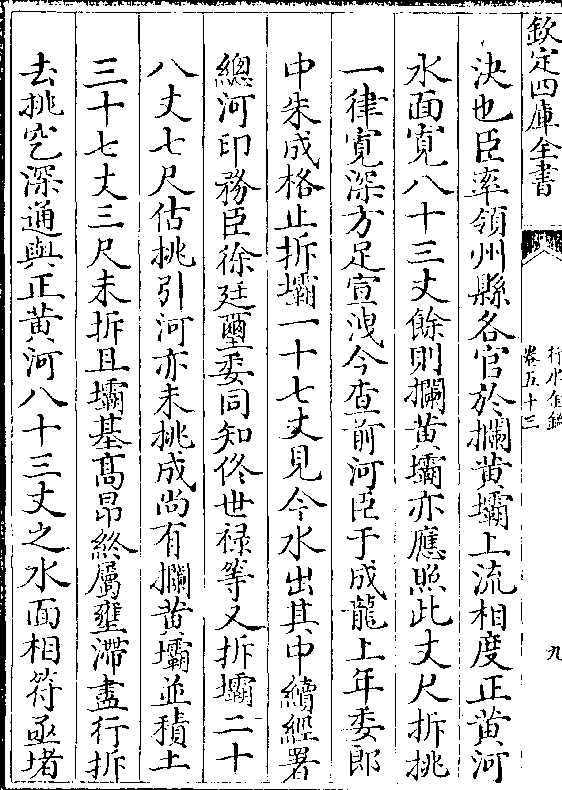 欽定四庫全書
行水金鑑
卷五十三
九
決也臣率領州縣各官於攔黄壩上流相度正黄河
水面寛八十三丈餘則攔黄壩亦應照此丈尺拆挑
一律寛深方足宣洩今查前河臣于成龍上年委郎
中朱成格止拆壩一十七丈見今水出其中續經署
總河印務臣徐廷璽委同知佟世禄等又拆壩二十
八丈七尺估挑引河亦未挑成尚有攔黄壩並積土
三十七丈三尺未拆且壩基髙昂終屬壅滯盡行拆
去挑空深通與正黄河八十三丈之水面相符亟堵